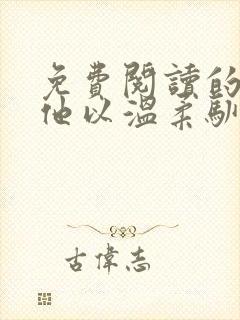 免費閱讀的
他以溫柔馴
古偉志